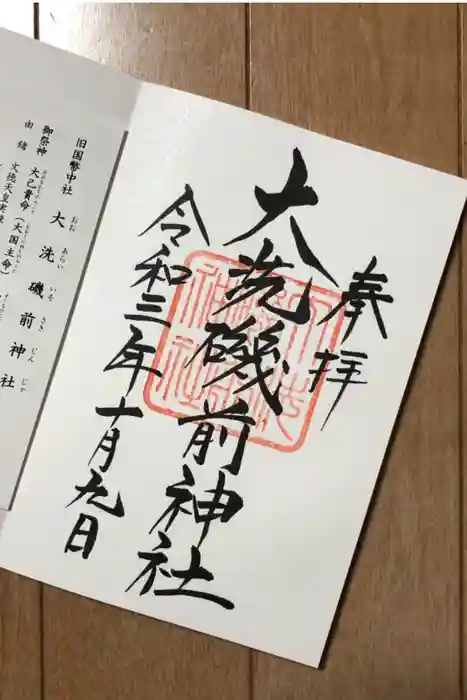 奉拝
大洗磯前神社
令和三年十月九日
旧国幣中社
大洗磯前神社
おお あらい いそ さき じん じゃ
御祭神 大己貴命（大国主命）
由緒 文徳天皇実録